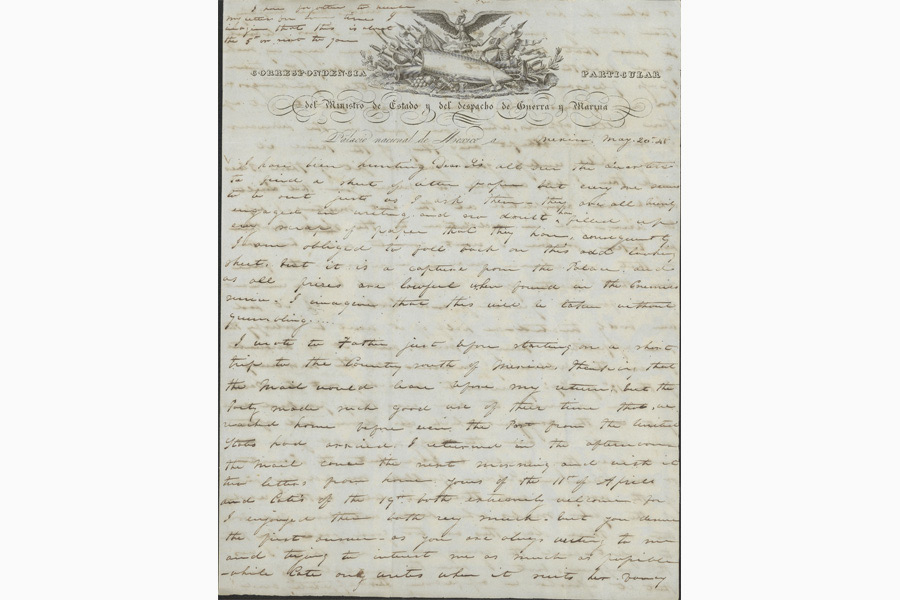 I am
my letter for
imagine that this is about
the 5th or not to you
CORRESPONDENCIA PARTICULAR
del Ministro de Estado y del despacho de Guerra y Marina
Palacio nacional de Mexico á Mexico, May 20th 48
I have been hunting Dear Sis all over the
to find a sheet of letter paper but every one seems
to be out just as I ask them - they are all busily
engaged in writing and no doubt have filled up
every scrap of paper that they have, consequently
I am obliged to fall back on this odd looking
sheet, but it is a capture from the Palace and
as all prizes are lawful when found in the Enemies
I imagine that this will be taken without
grumbling....
I wrote to Father just before starting on a short
trip to the Country south of Mexico, thinking that
the Mail would leave before my return, but the
Party made such good use of their time that we
reached home before even the Post from the United
States had arrived. I returned in the afternoon
the mail came the next morning and with it
two letters from home yours of the 11th of April
and Cate's of the 19th both extremely welcome for
I enjoyed them both very much. but you deserve
the first answer - as you are always writing to me
and trying to interest me as much as possible
-while Cate only writes when it suits her fancy